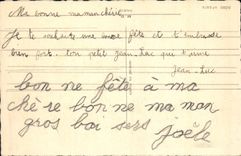 Ma bonne maman chérie
Je te souhaite une bonne fête et t'embrasse
bien fort. ton petit Jean-Luc qui t'aime
Jean-Luc
bon ne fête à ma
ché re bon ne ma man
gros bai sers joële